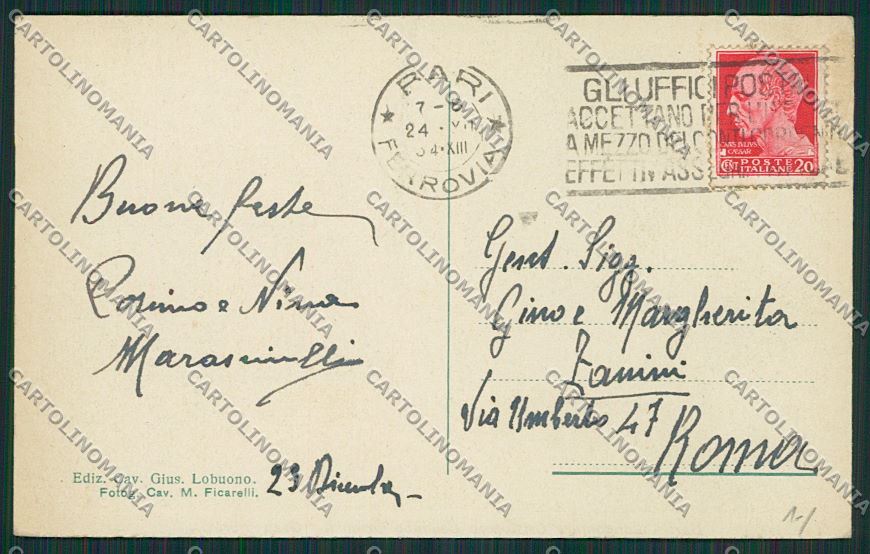 BARI
7-8
24 · XII
34·XIII
FERROVIA
GLI UFFICI POS
ACCETTANO PER
A MEZZO DEI CONTI CORRENTI
EFFETTI IN ASS
CAIVS IVLIVS
CAESAR
CENT POSTE 20
ITALIANE
Buone feste
e Nina
Gent. Sigg.
Gino e Margherita
Zanini
Via Umberto 47
Roma
Ediz. Cav. Gius. Lobuono.
Fotog. Cav. M. Ficarelli.
23 Dicembre
CARTOLINOMANIA